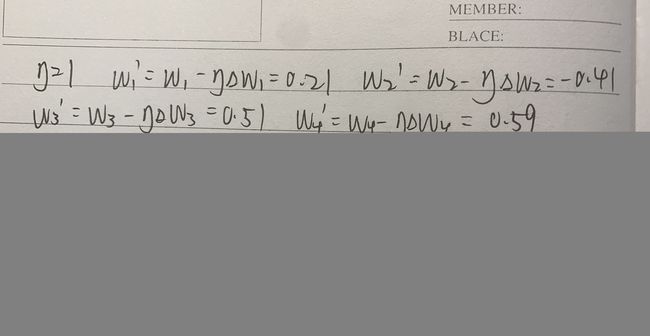 MEMBER:
BLACE:
η=1 w₁' = w₁ - ηΔw₁ = 0.21 w₂' = w₂ - ηΔw₂ = -0.41
w₃' = w₃ - ηΔw₃ = 0.51 w₄' = w₄ - ηΔw₄ = 0.59